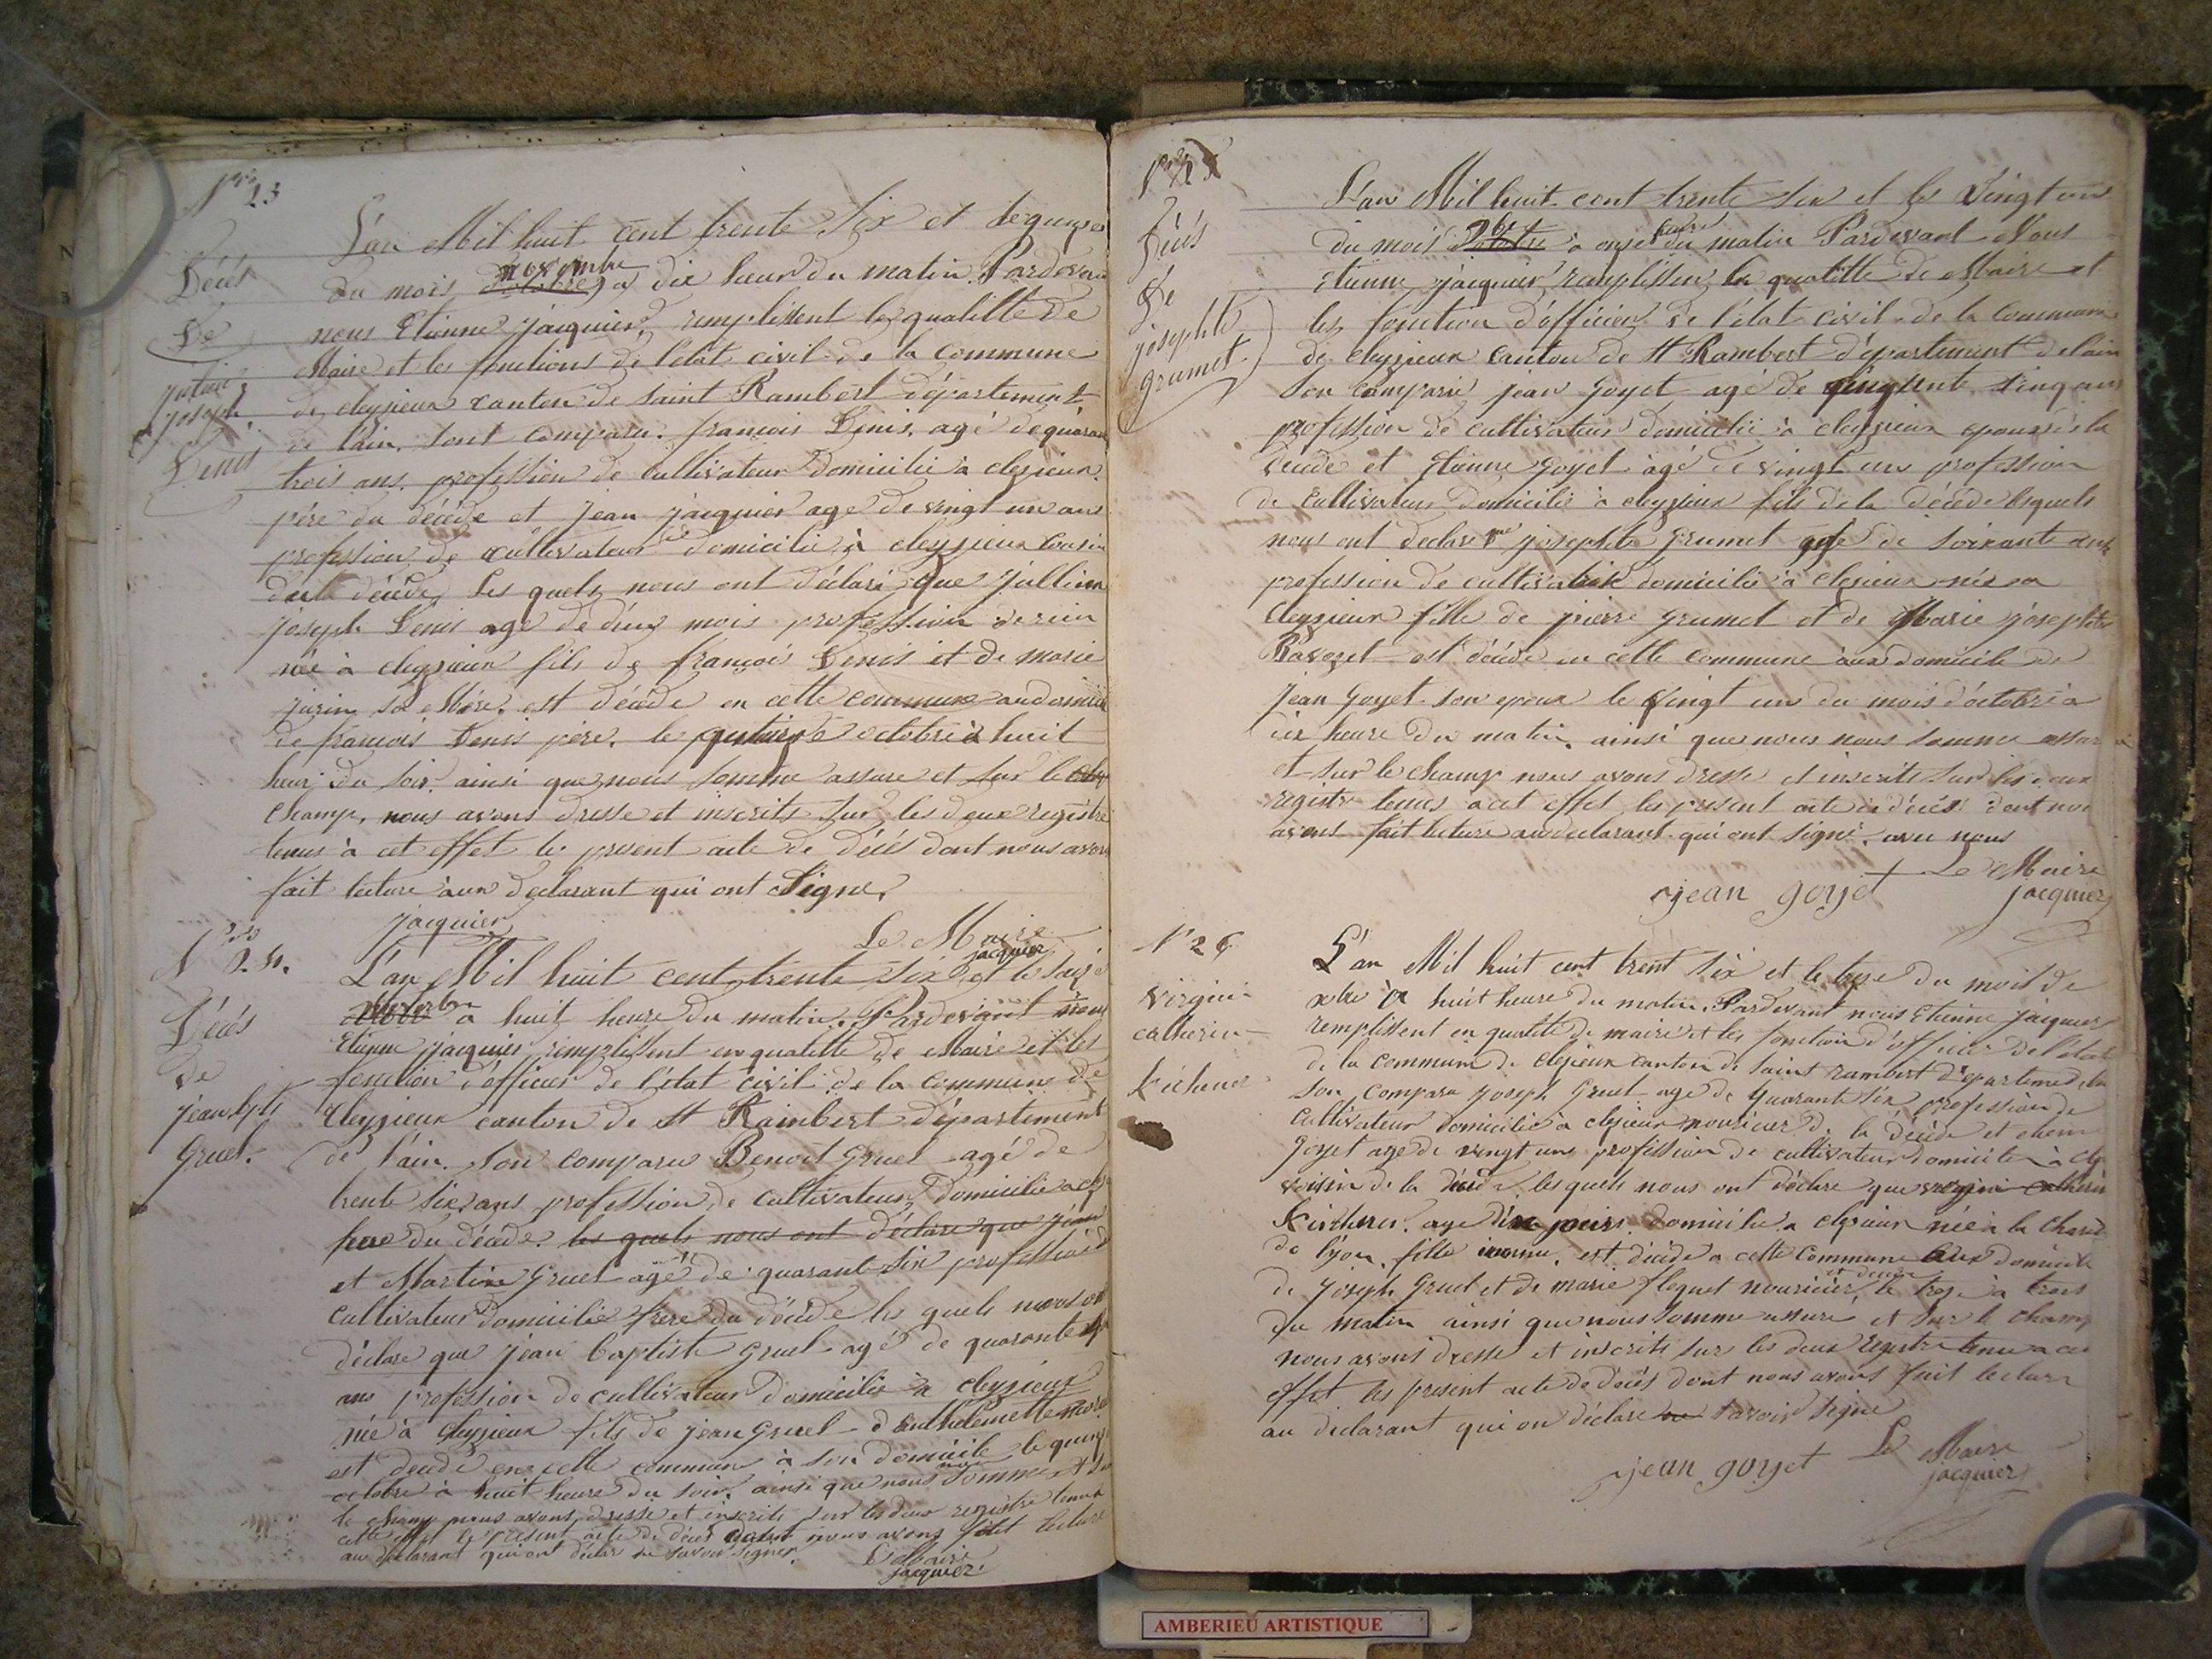 N° 23
Décès
De
julien
joseph
Denis
L'an Mil huit cent trente Six et le quinze
du mois novembre à dix heur du matin Pardevan
nous Etienne jacquier, remplissent la qualitté de
Maire et les fonctions de l'état civil de la commune
de cleyzieux canton de saint Rambert département
de l'ain, sont comparu. françois Denis, agé de quaran
trois ans, profession de Cultivateur domicilié à clezieux
père du décéde et jean jacquier agé de vingt un ans
profession de cultivateur domicilié à cleyzieux Cousin
du décéde, Les quels nous ont déclaré que jullien
joseph Denis agé de deux mois profession de rien
née à cleyzieux fils de françoi Denis et de marie
juzin sa Mére, est décéde en cette commune au domicile
de françois Denis père, le octobre à huit
heur du soir, ainsi que nous somme assure et sur le
champ, nous avons dresse et inscrits sur les deux registre
tenus à cet effet le present acte de décés dont nous avons
fait lecture aux declarant qui ont Signe,
jacquier
Le Maire
jacquier
N° 24.
Décès
de
jean bpte
Gruel.
L'an Mil huit cent trente six et le seize
à huit heure du matin, Pardevant nous
Etienne jacquier remplissent en qualitte de Maire et les
fonction d'officier de l'état civil de la commune de
Cleyzieux canton de St Rambert département
de l'ain. Son comparu Benoit Gruel agé de
trente six ans profession de cultivateur domicilié a cley
frere du décéde. les quels nous ont déclare que jean
et Martin Gruel agé de quarant six profession d
cultivateur domicilié frere du décéde les quels nous on
déclare que jean baptiste Gruel agé de quarante
ans profession de cultivateur domicilié a cleyzieux
née à Cleyzieux fils de jean Gruel d'Anthelemette
est decede en cette commune à son domicile le quinze
octobre à huit heure du soir, ainsi que nous nous somme et sur
le champ nous avons dresse et inscrits sur les deux registre tenus
cette effet le présent acte de décés dont nous avons fait lecture
au declarant qui ont déclare ne savoir signer.
Le Maire
jacquier
Décés
De
josephte
grumet
L'an Mil huit cent trente six et le Vingt un
du mois 9bre à onze heure du matin Pardevant Nous
Etienne jacquier remplissen la qualitte de Maire et
les fonction d'officier de l'état civil de la Commune
de cleyzieux canton de St Rambert département de l'ain
Son comparu jean Goyet agé de cinq ans
profession de cultivateur domicilié à cleyzieux epoux de la
decede et Etienne Goyet agé de vingt un profession
de Cultivateur domicilié à cleyzieux fils de la décéde lesquels
nous ont declare que josephte Grumet agé de soixante ans
profession de cultivatrice domicilié à clezieux née a
Cleyzieux fille de pierre Grumet et de Marie josephte
Ravozet est décéde en cette commune aux domicile de
jean Goyet son epoux le Vingt un du mois d'octobre à
dix heure du matin, ainsi que nous nous somme assur
et sur le champ nous avons dresse et inscrits sur les deux
registre tenus a cet effet les present acte de décés dont nou
avons fait lecture au declarant qui ont signé. avec nous
jean goyet
Le Maire
jacquier
N° 26
Virgini
catherin
Kicherer
L'an Mil huit cent trent Six et le treze du mois de
xbre à huit heure du matin, Pardevant nous Etienne jacquier
remplissent en qualité de maire et les fonction d'officier de l'état
de la commune de clezieux canton de saint rambert departeme de lai
Son Compara joseph Gruel age de quarante six profession de
Cultivateur domicilié à clezieux nouricier de la décéde et etien
Goyet age de vingt uns profession de cultivateur domicilie à cley
voisin de la décéde, lesquels nous ont déclare que virgini catherin
Kircherer, age domicilie a clezieux née à la charite
de lyon, fille inconnu, est décéde a cette commune aux domicile
de joseph Gruel et de marie floquet nouricier le treze à trois
du matin ainsi que nous somme assuré, et sur le champ
nous avons dresse et inscrits sur les deux registre tenu a cet
effet les present acte de décés dont nous avons fait lecture
au declarant qui on déclare savoir signe
jean goyet
Le Maire
jacquier
AMBERIEU ARTISTIQUE